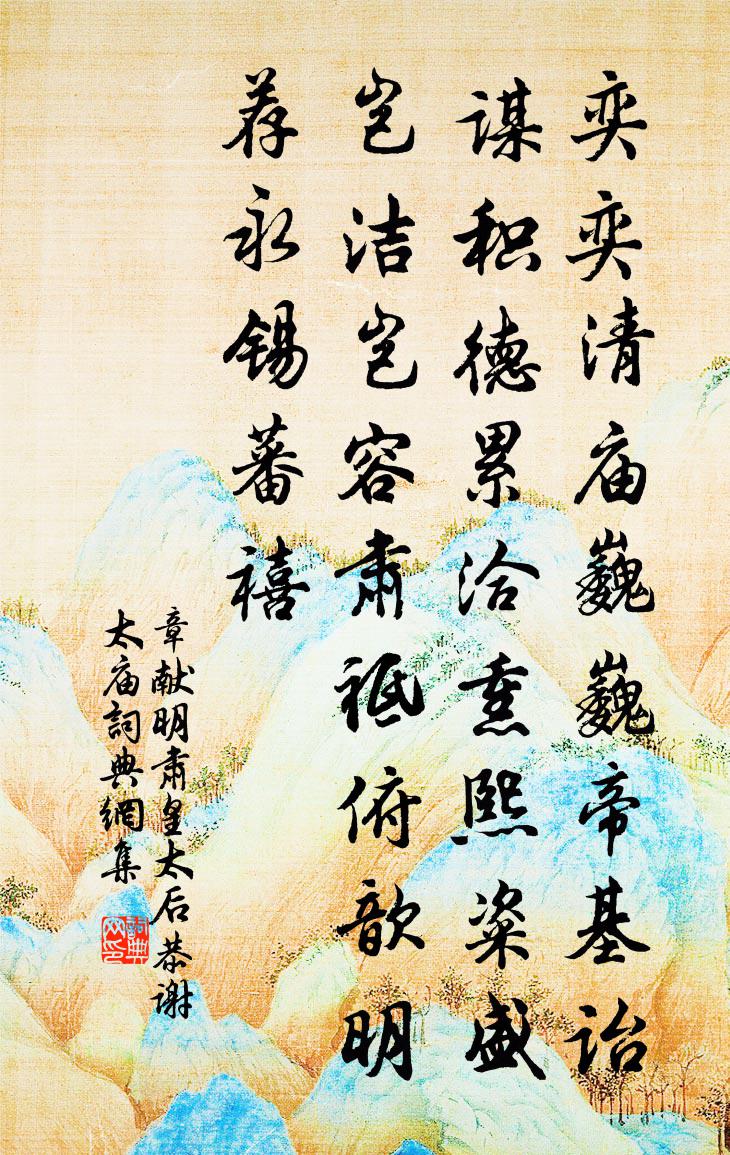 奕奕清庙巍巍帝基诒
谋积德累洽重熙粢盛
岂洁岂容肃祗俯歆明
荐永锡蕃禧
章献明肃皇太后恭谢
太庙詞典網集
詞典
网印